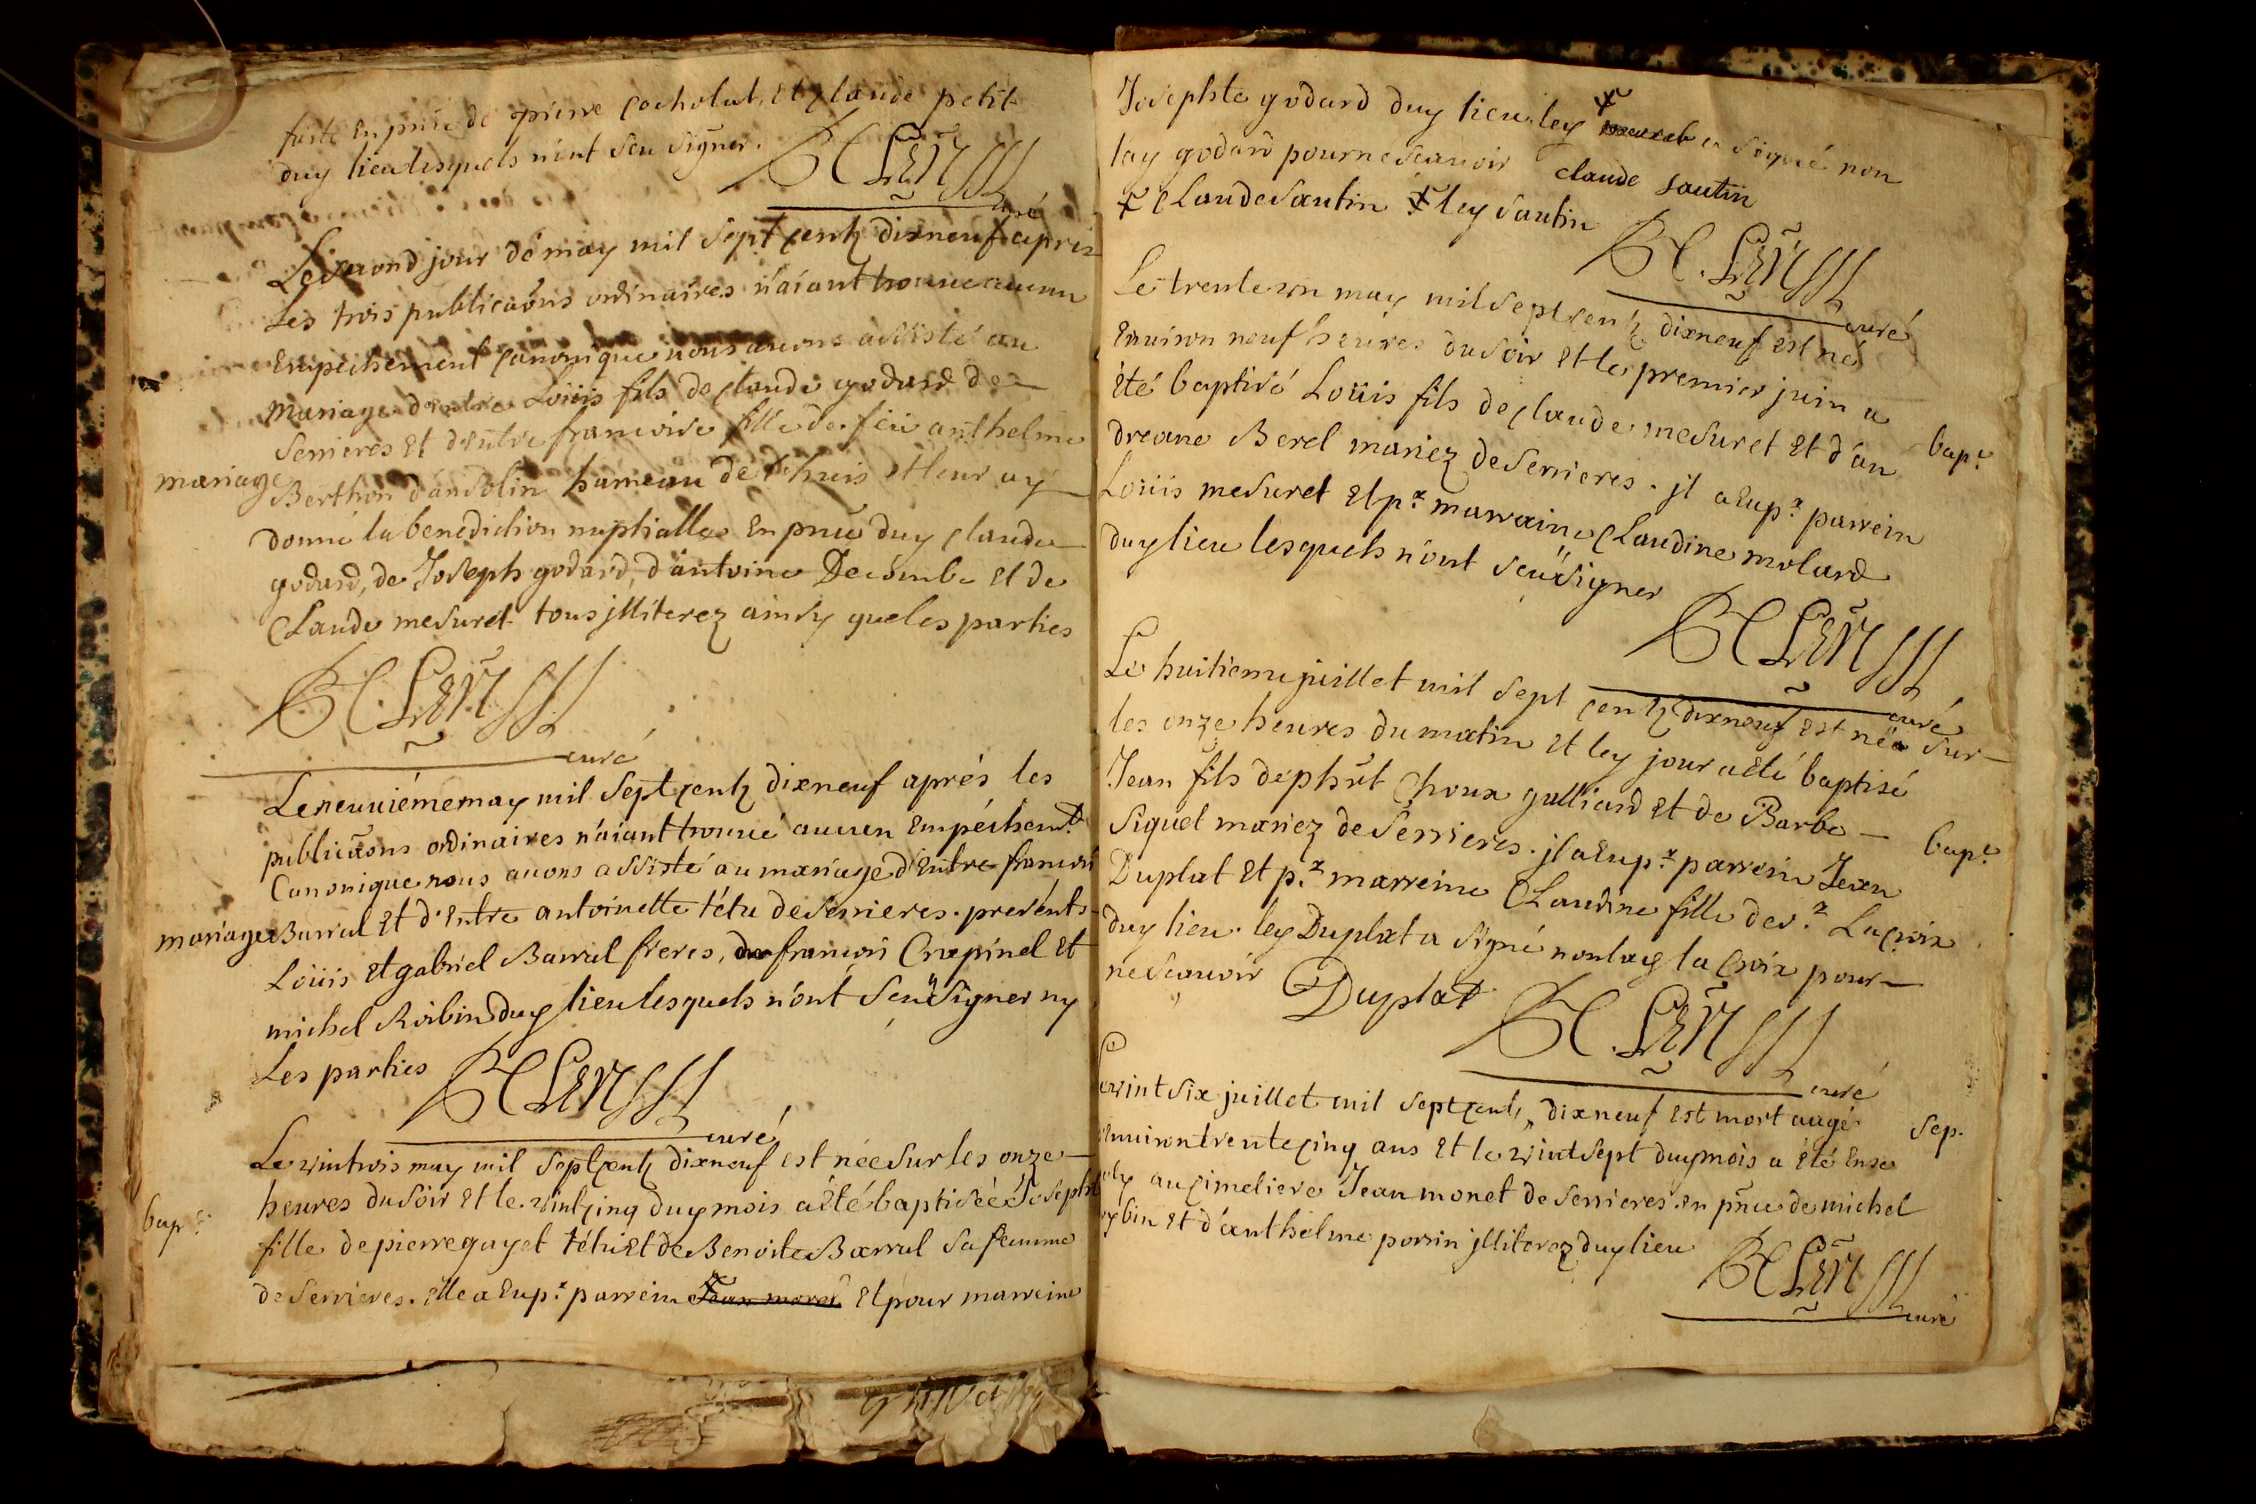 faite en pnce de pierre cocholat, et claude petit
duy lieu lesquels n'ont sçu signer.
curé
Le second jour de may mil sept centz dixneuf apres
Les trois publicaõns ordinaires n'aiant trouué aucun
Empeschement canonique nous auons assisté au
mariage d'entre Loüis fils de claude godard de
mariage
serrieres et d'entre francoise fille de feu anthelme
Berthon d'ansolin hameau de lhuis et leur ay
donné la benediction nuptialle en pnce duy claude
godard, de Joseph godard, d'antoine Decombe et de
Claude mesuret tous jlliterez ainsy que les parties
curé
Le neuuiéme may mil sept centz dixneuf aprés les
publicaõns ordinaires n'aiant trouué aucun Empéchemt
Canonique nous auons assisté au mariage d'entre francois
mariage
Barral et d'Entre antoinette tétu de serrieres. presents
Loüis et gabriel Barral freres, de francois Crapinel et
michel Roibin duy lieu lesquels n'ont sçeu signer ny
Les parties
curé
Le vintrois may mil sept centz dixneuf est née sur les onze
heures du soir et le vintcinq duy mois a été baptisée Josephte
bap.e
fille de pierre gayet tétu et de Benoite Barral sa femme
de serrieres. elle a Eu p.r parrein Jean moret et pour marreine
Josephte godard duy lieu. ley a signé non
lay godard pour ne scauoir claude sautin
Claude sautin ley sautin
curé
Le trente un may mil sept centz dixneuf est né
Enuiron neuf heures du soir et le premier juin a
été baptisé Loüis fils de claude mesuret et d'an
bap.e
dreane Berel mariez de serrieres. jl a Eu p.r parrein
Loüis mesuret et p.r marraine Claudine molard
duy lieu lesquels n'ont sçeu signer
curé
Le huitieme juillet mil sept centz dixneuf est né sur
les onze heures du matin et ley jour a été baptisé
Jean fils de phŭt Choux galliard et de Barbe
bap.e
Siquel mariez de serrieres. jl a Eu p.r parrein Jean
Duplat et p.r marreine Claudine fille de s.r Lacroix
duy lieu. ley Duplat a signé non lay la croix pour
ne scauoir Duplat
curé
Le vint six juillet mil sept centz dixneuf est mort aagé
sep.
enuiron trente cinq ans et le vint sept duy mois a été Ense
uely au cimetiere Jean monet de serrieres. en pnce de michel
rybin et d'anthelme perrin jlliterez duy lieu
curé